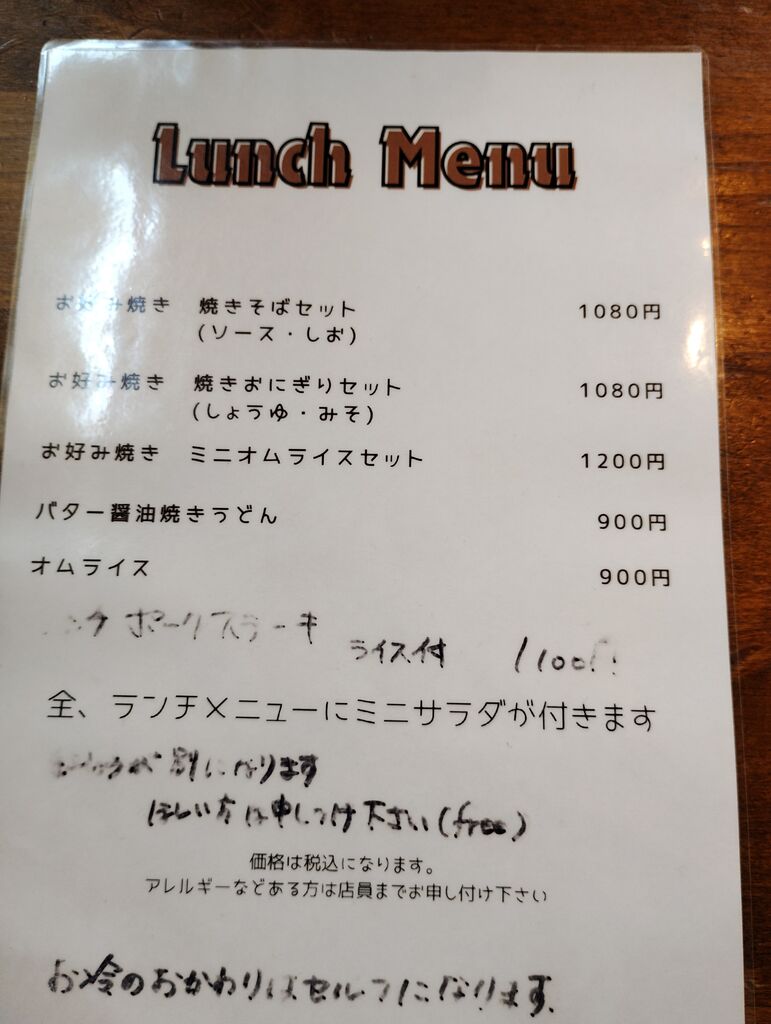 Lunch Menu
お好み焼き 焼きそばセット 1080円
(ソース・しお)
お好み焼き 焼きおにぎりセット 1080円
(しょうゆ・みそ)
お好み焼き ミニオムライスセット 1200円
バター醤油焼きうどん 900円
オムライス 900円
ポークステーキ ライス付 1100
全、ランチメニューにミニサラダが付きます
別になります
ほしい方は申しつけ下さい(free)
価格は税込になります。
アレルギーなどある方は店員までお申し付け下さい
お冷のおかわりはセルフになります。